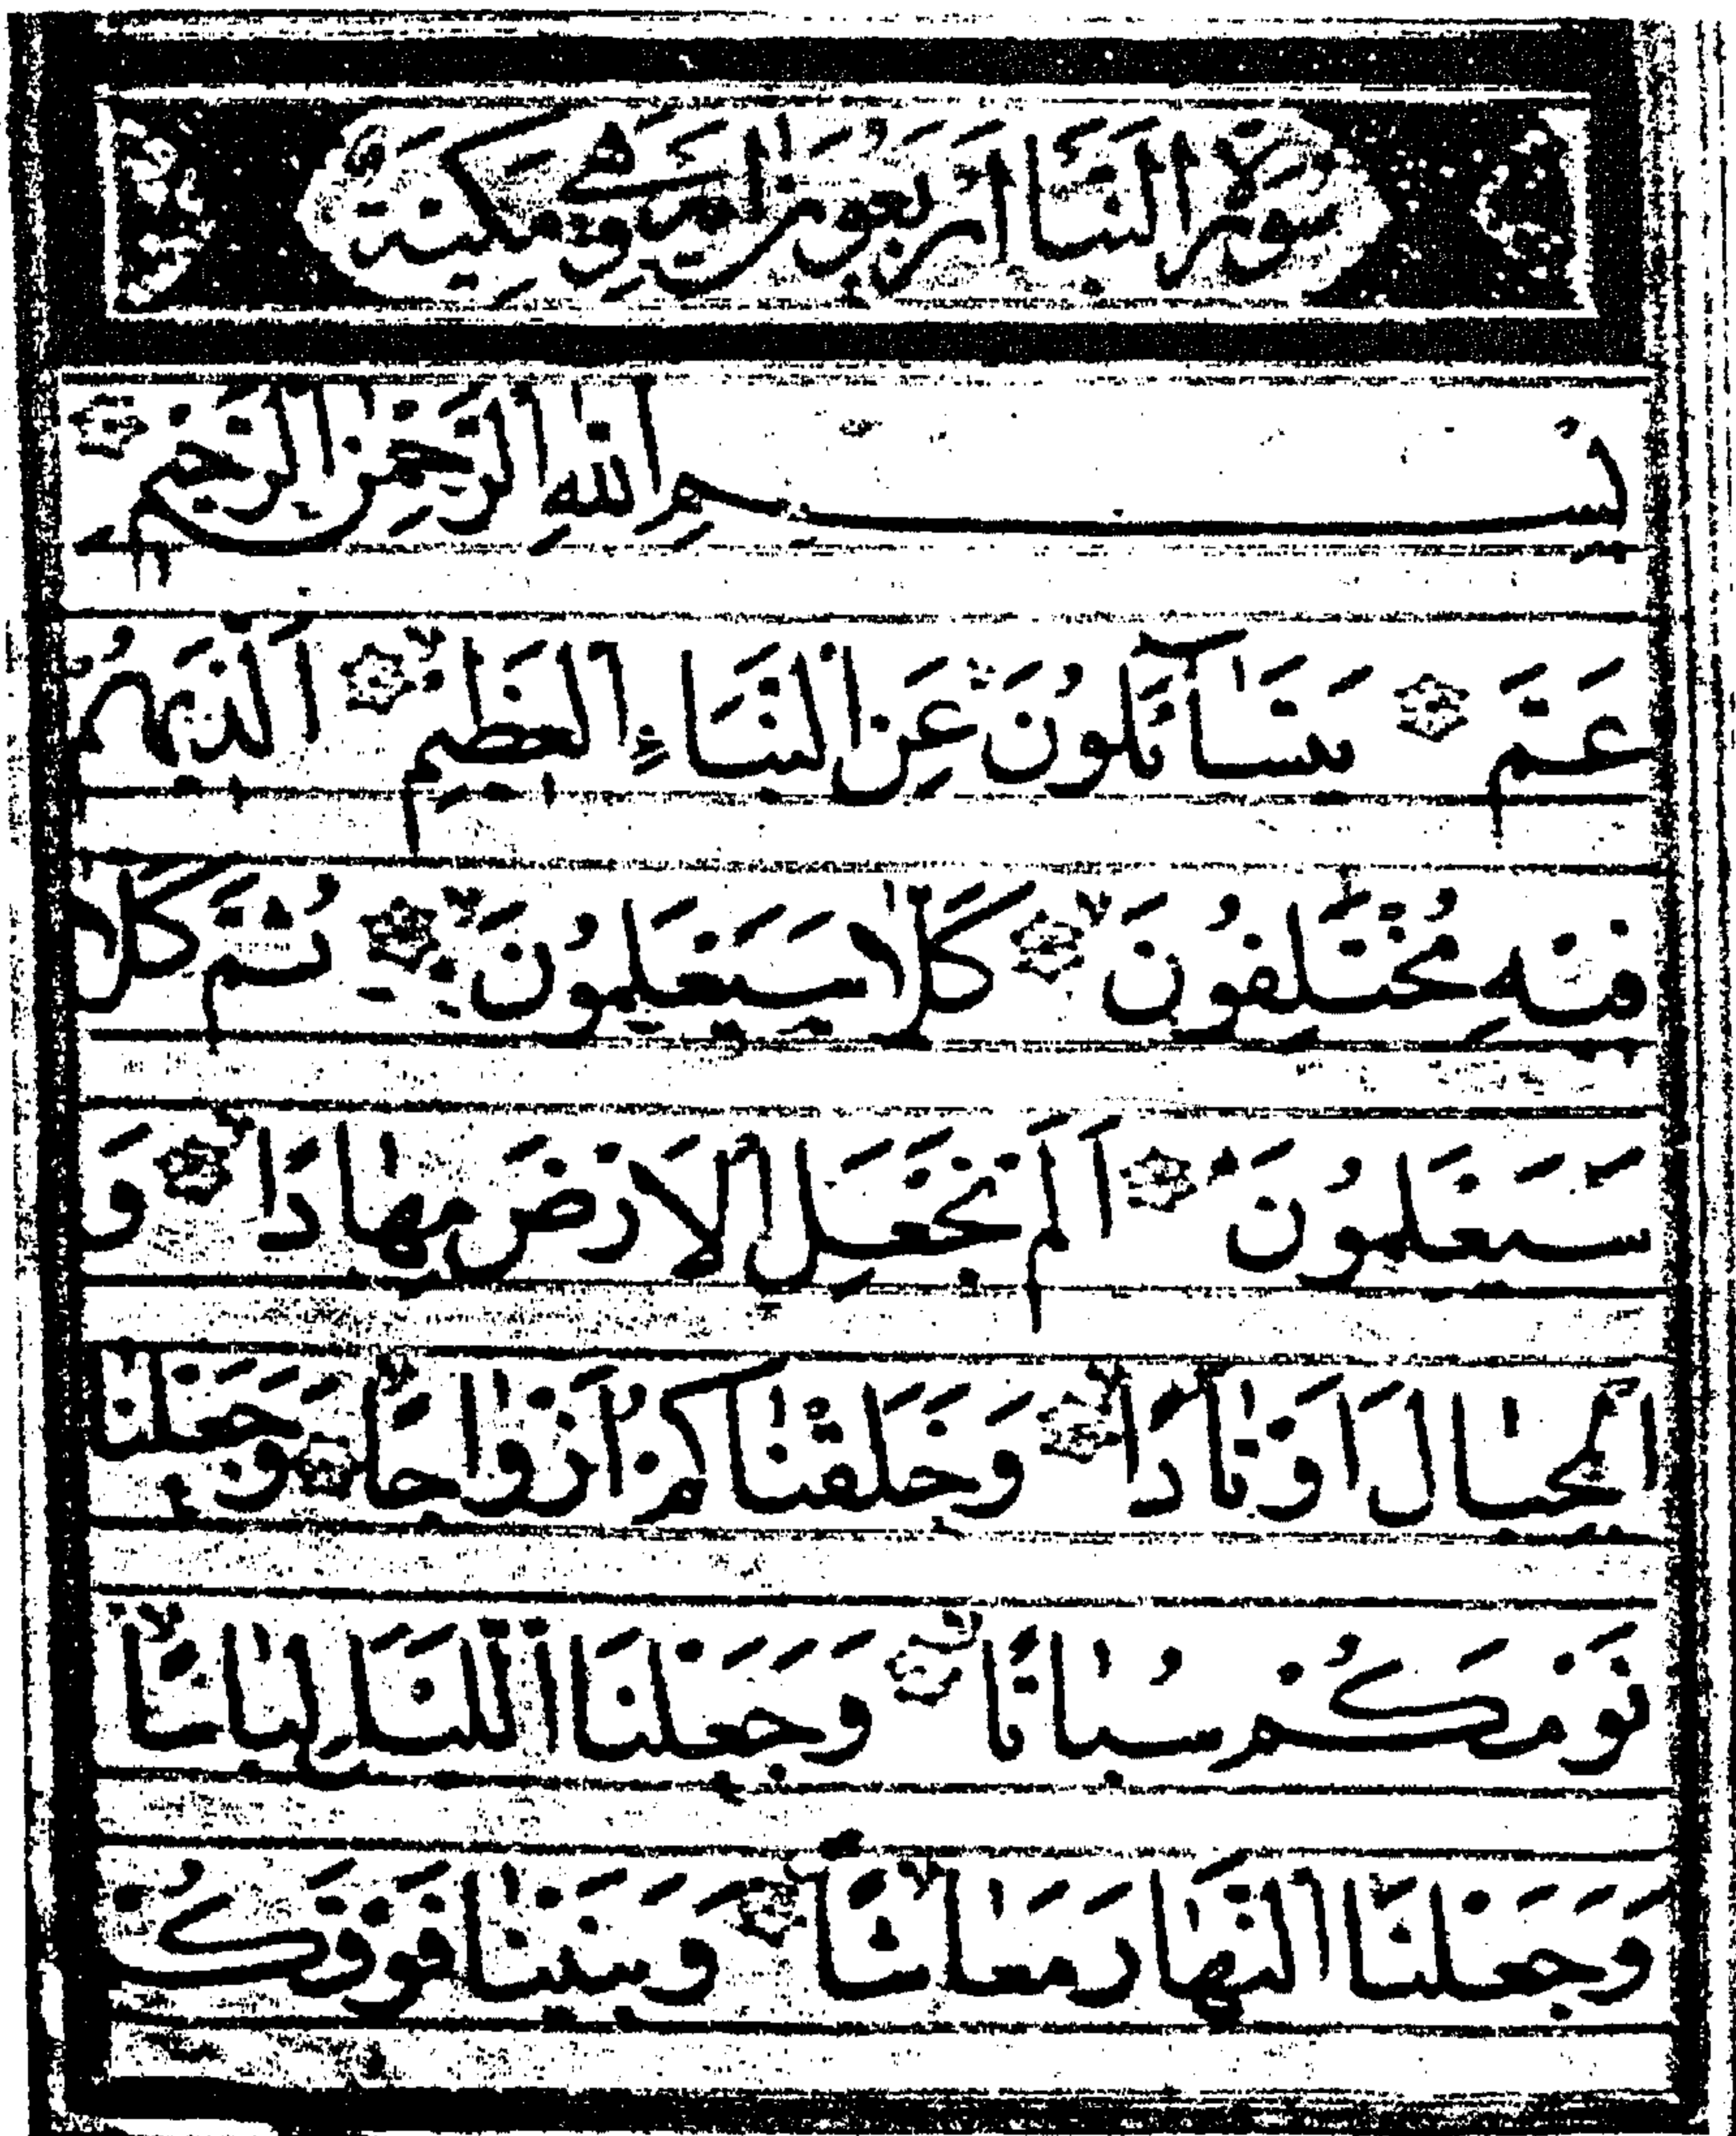 سُورَةُ النَّبَأِ أَرْبَعُونَ آيَةً وَهِيَ مَكِّيَّةٌ
بِسْمِ اللهِ الرَّحْمٰنِ الرَّحِيمِ
عَمَّ يَتَسَاۤئَلُونَ عَنِ النَّبَاءِ الْعَظِيمِ اَلَّذِي هُمْ
فِيهِ مُخْتَلِفُونَ كَلَّا سَيَعْلَمُونَ ثُمَّ كَلَّا
سَيَعْلَمُونَ اَلَمْ نَجْعَلِ الْاَرْضَ مِهَادًا وَ
الْجِبَالَ اَوْتَادًا وَخَلَقْنَاكُمْ اَزْوَاجًا وَجَعَلْنَا
نَوْمَكُمْ سُبَاتًا وَجَعَلْنَا اللَّيْلَ لِبَاسًا
وَجَعَلْنَا النَّهَارَ مَعَاشًا وَبَنَيْنَا فَوْقَكُمْ